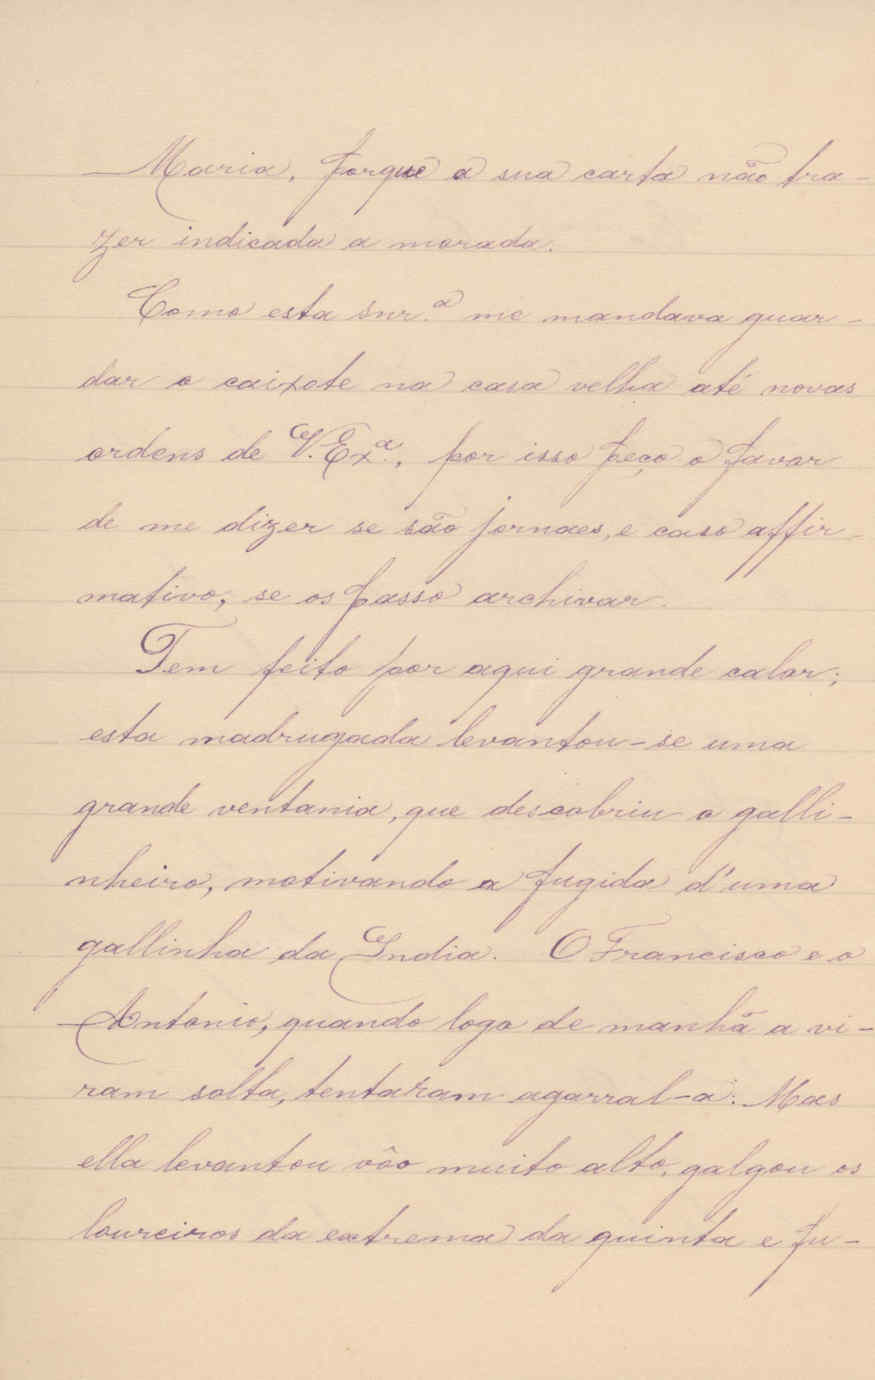 Maria, porque a sua carta não tra-
zer indicada a morada.
Como esta snr.ª me mandava guar-
dar o caixote na casa velha até novas
ordens de V. Exª., por isso peço o favor
de me dizer se são jornaes, e caso affir-
mativo, se os passo archivar.
Tem feito por aqui grande calor;
esta madrugada levantou-se uma
grande ventania, que descobriu o galli-
nheiro, motivando a fugida d'uma
gallinha da India. O Francisco e o
Antonio, quando logo de manhã a vi-
ram solta, tentaram agarral-a. Mas
ella levantou vôo muito alto, galgou os
loureiros da extrema da quinta e fu-